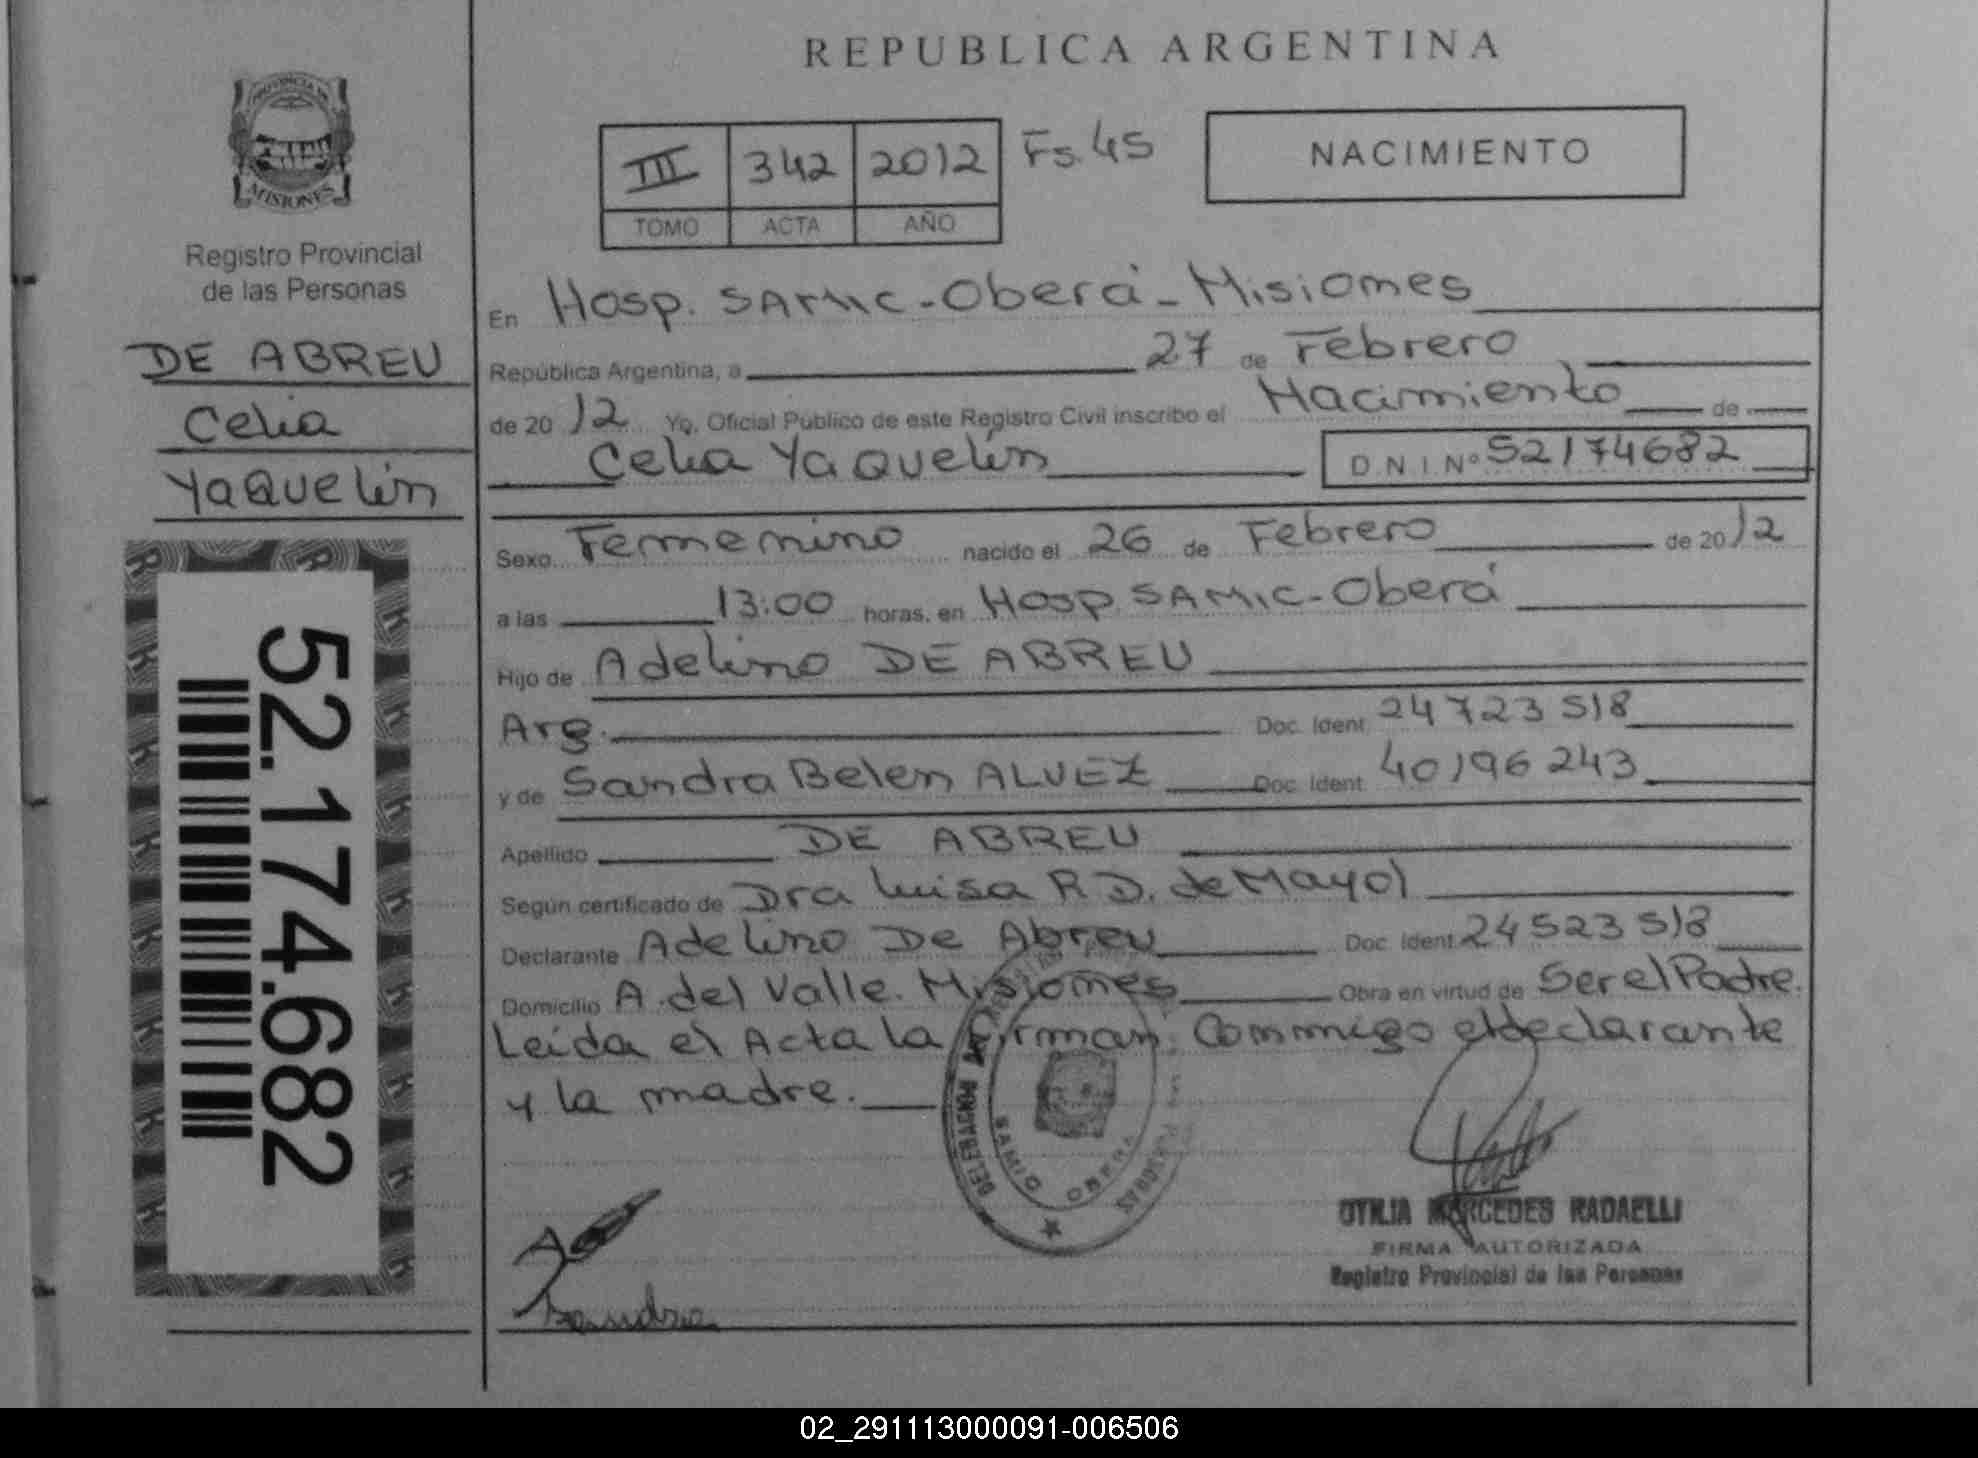 REPUBLICA ARGENTINA
PROVINCIA DE
MISIONES
Registro Provincial
de las Personas
DE ABREU
Celia
Yaquelin
52.174.682
III 342 2012 Fs. 45
TOMO ACTA AÑO
NACIMIENTO
En Hosp. SAMIC - Oberá - Misiones
República Argentina, a 27 de Febrero
de 2012 Yo, Oficial Público de este Registro Civil inscribo el Nacimiento de
Celia Yaquelin D.N.I. Nº 52174682
Sexo Femenino nacido el 26 de Febrero de 2012
a las 13:00 horas, en Hosp. SAMIC - Oberá
Hijo de Adelino DE ABREU
Arg. Doc. Ident. 24723518
y de Sandra Belen ALVEZ Doc. Ident. 40196243
Apellido DE ABREU
Según certificado de Dra Luisa R.D. de Mayol
Declarante Adelino De Abreu Doc. Ident. 24523518
Domicilio A. del Valle. Misiones Obra en virtud de Ser el Padre.
Leida el Acta la Firman Conmigo el declarante
y la madre.
DELEGACION
SAMIC OBERA
PERSONAS
Sandra
OTILIA MERCEDES RADAELLI
FIRMA AUTORIZADA
Registro Provincial de las Personas
02_291113000091-006506